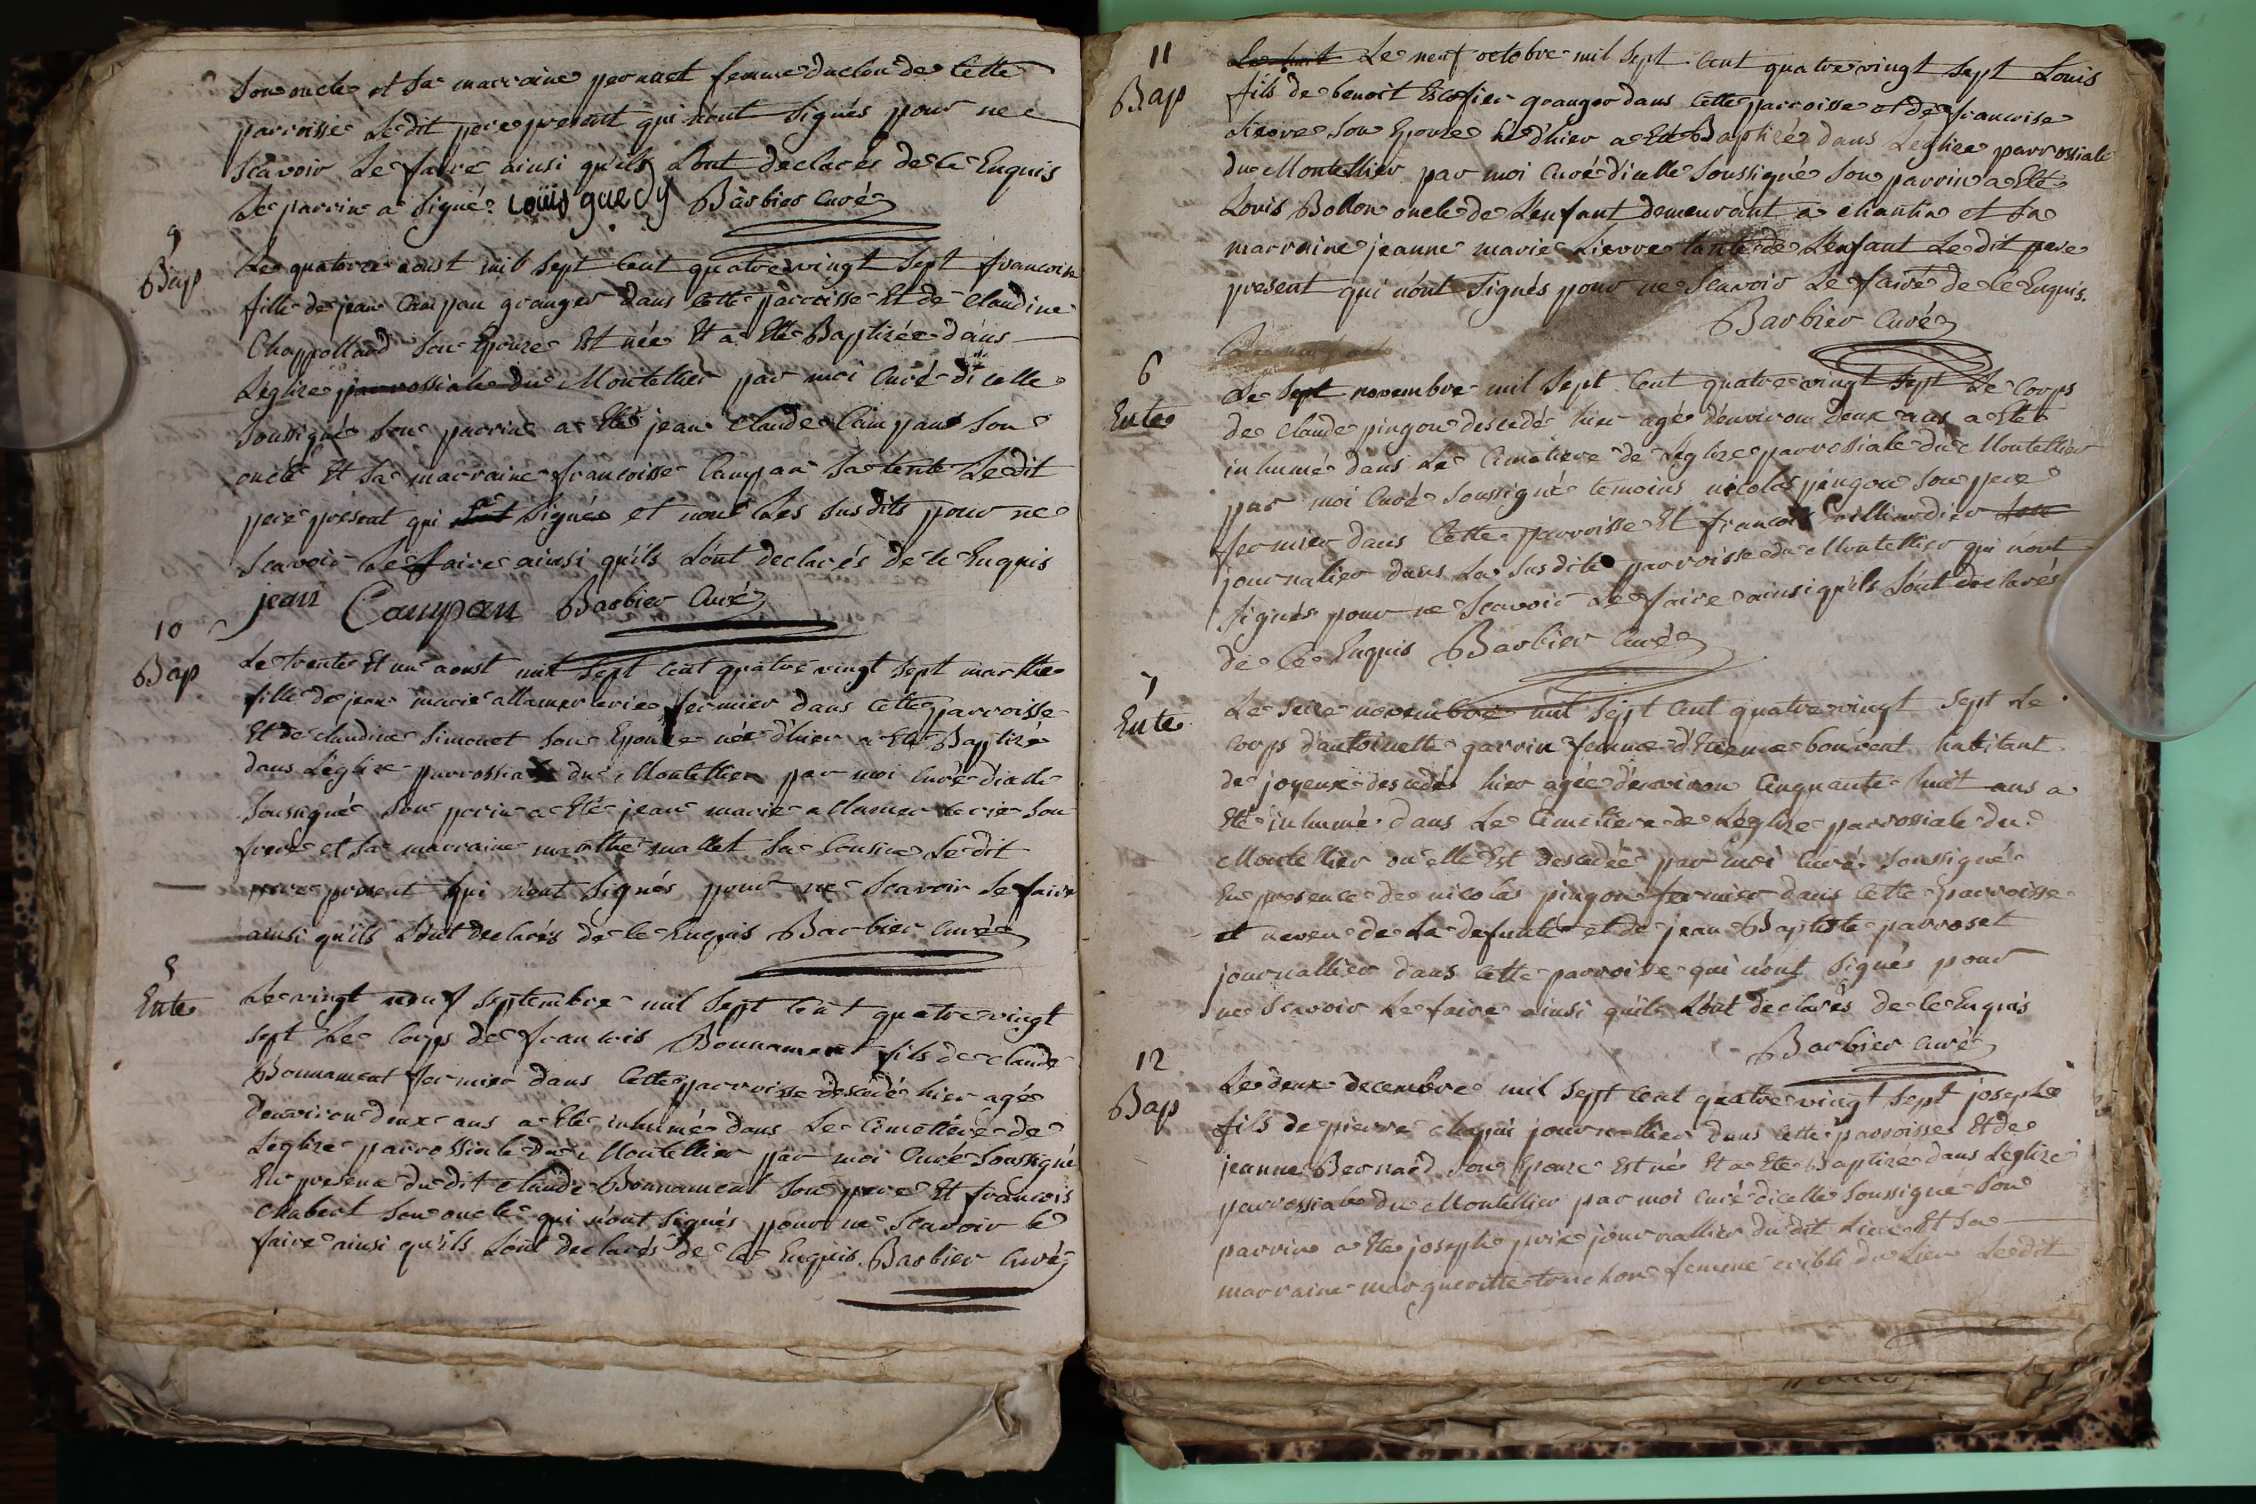 Son oncle et Sa marraine pernaet femme duclou de Cette
parroisse Le dit pere present qui n'ont Signés pour ne
Scavoir Le faire ainsi qu'ils L'ont declarés de Ce Enquis
Le parrin a Signé. Louis guedy Barbier Curé
9
Bap
Le quatorze aoust mil Sept Cent quatre vingt Sept francoise
fille de jean Campan granger dans Cette parroisse Et de Claudine
Chappolland Son Epouze Est née Et a Eté Baptizée dans
Leglize parrossiale du Montellier par moi Curé d'icelle
Soussigné Son parrin a Eté jean Claude Campan Son
oncle Et Sa marraine francoisse Campan Sa tente Le dit
pere présent qui Signé et non Les Susdits pour ne
Scavoir Le faire ainsi qu'ils L'ont declarés de Ce Enquis
jean Campan Barbier Curé
10
Bap
Le trente Et un aoust mil Sept Cent quatre vingt Sept marthe
fille de jean marie allamercerie fermier dans Cette parroisse
Et de claudine Simonet Son Epouze née d'hier a Eté Baptize
dans Léglize parrossiale du Montellier par moi Curé d'icelle
Soussigné Son perin a Eté jean marie allamercerie Son
frere et Sa marraine marthe mallet Sa Cousine Le dit
pere present qui n'ont Signés pour ne Scavoir Le faire
ainsi qu'ils L'ont declarés de Ce Enquis Barbier Curé
5
Ente
Le vingt neuf Septembre mil Sept Cent quatre vingt
Sept Le Corps de francois Bonnament fils de claude
Bonnament fermier dans Cette parroisse descedé hier agé
d'environ deux ans a Eté inhumé dans Le Cimetiére de
Léglize parrossiale du Montellier par moi Curé Soussigné
En presence du dit claude Bonnament Son pere Et francois
chabert Son oncle qui n'ont Signés pour ne Scavoir le
faire ainsi qu'ils L'ont declarés de Ce Enquis Barbier Curé
11
Bap
Le huit Le neuf octobre mil Sept Cent quatre vingt Sept Louis
fils de benoit Escofier granger dans Cette parroisse et de francoise
Lievre Son Epouze né d'hier a Eté Baptizé dans Leglize parrossiale
du Montellier par moi Curé d'icelle Soussigné Son parrin a Eté
Louis Bollon oncle de L'enfant demeurant a chanlia et Sa
marraine jeanne marie Lievre tante de L'enfant Le dit pere
present qui n'ont Signés pour ne Scavoir Le faire de Ce Enquis.
Barbier Curé
6
Ente
Le Sept novembre mil Sept Cent quatre vingt Sept Le Corps
de claude pingon descedé hier agé d'environ deux ans a Eté
inhumé dans Le Cimetiere de Leglize parrossiale du Montellier
par moi Curé Soussigné temoins nicolas pingon Son pere
fermier dans Cette parroisse Et francois Gailliardier Son
journalier dans La Susdite parroisse du Montellier qui n'ont
Signés pour ne Scavoir Le faire ainsi qu'ils L'ont declarés
de Ce Enquis Barbier Curé
7
Ente
Le Seize novembre mil Sept Cent quatre vingt Sept Le
Corps d'antoinette garrin femme d'Etienne bouvent habitant
de joyeux descedée hier agée d'environ Cinquante huit ans a
Eté inhumé dans Le Cimetiere de Léglize parrossiale du
Montellier ou elle Est descedée par moi Curé Soussigné
En presence de nicolas pingon fermier dans Cette parroisse
et neveu de La defunte et de jean Baptiste parroset
journallier dans Cette parroisse qui n'ont Signés pour
ne Scavoir Le faire ainsi qu'ils L'ont declarés de Ce Enquis
Barbier Curé
12
Bap
Le deux decembre mil Sept Cent quatre vingt Sept joseph
fils de pierre chapui journallier dans Cette parroisse Et de
jeanne Bernard Son Epouze Est né Et a Eté Baptizé dans Leglize
parrossiale du Montellier par moi Curé d'icelle Soussigné Son
parrin a Eté joseph prix journallier du dit Lieu Et Sa
marraine margueritte truchon femme cribli du Lieu Le dit